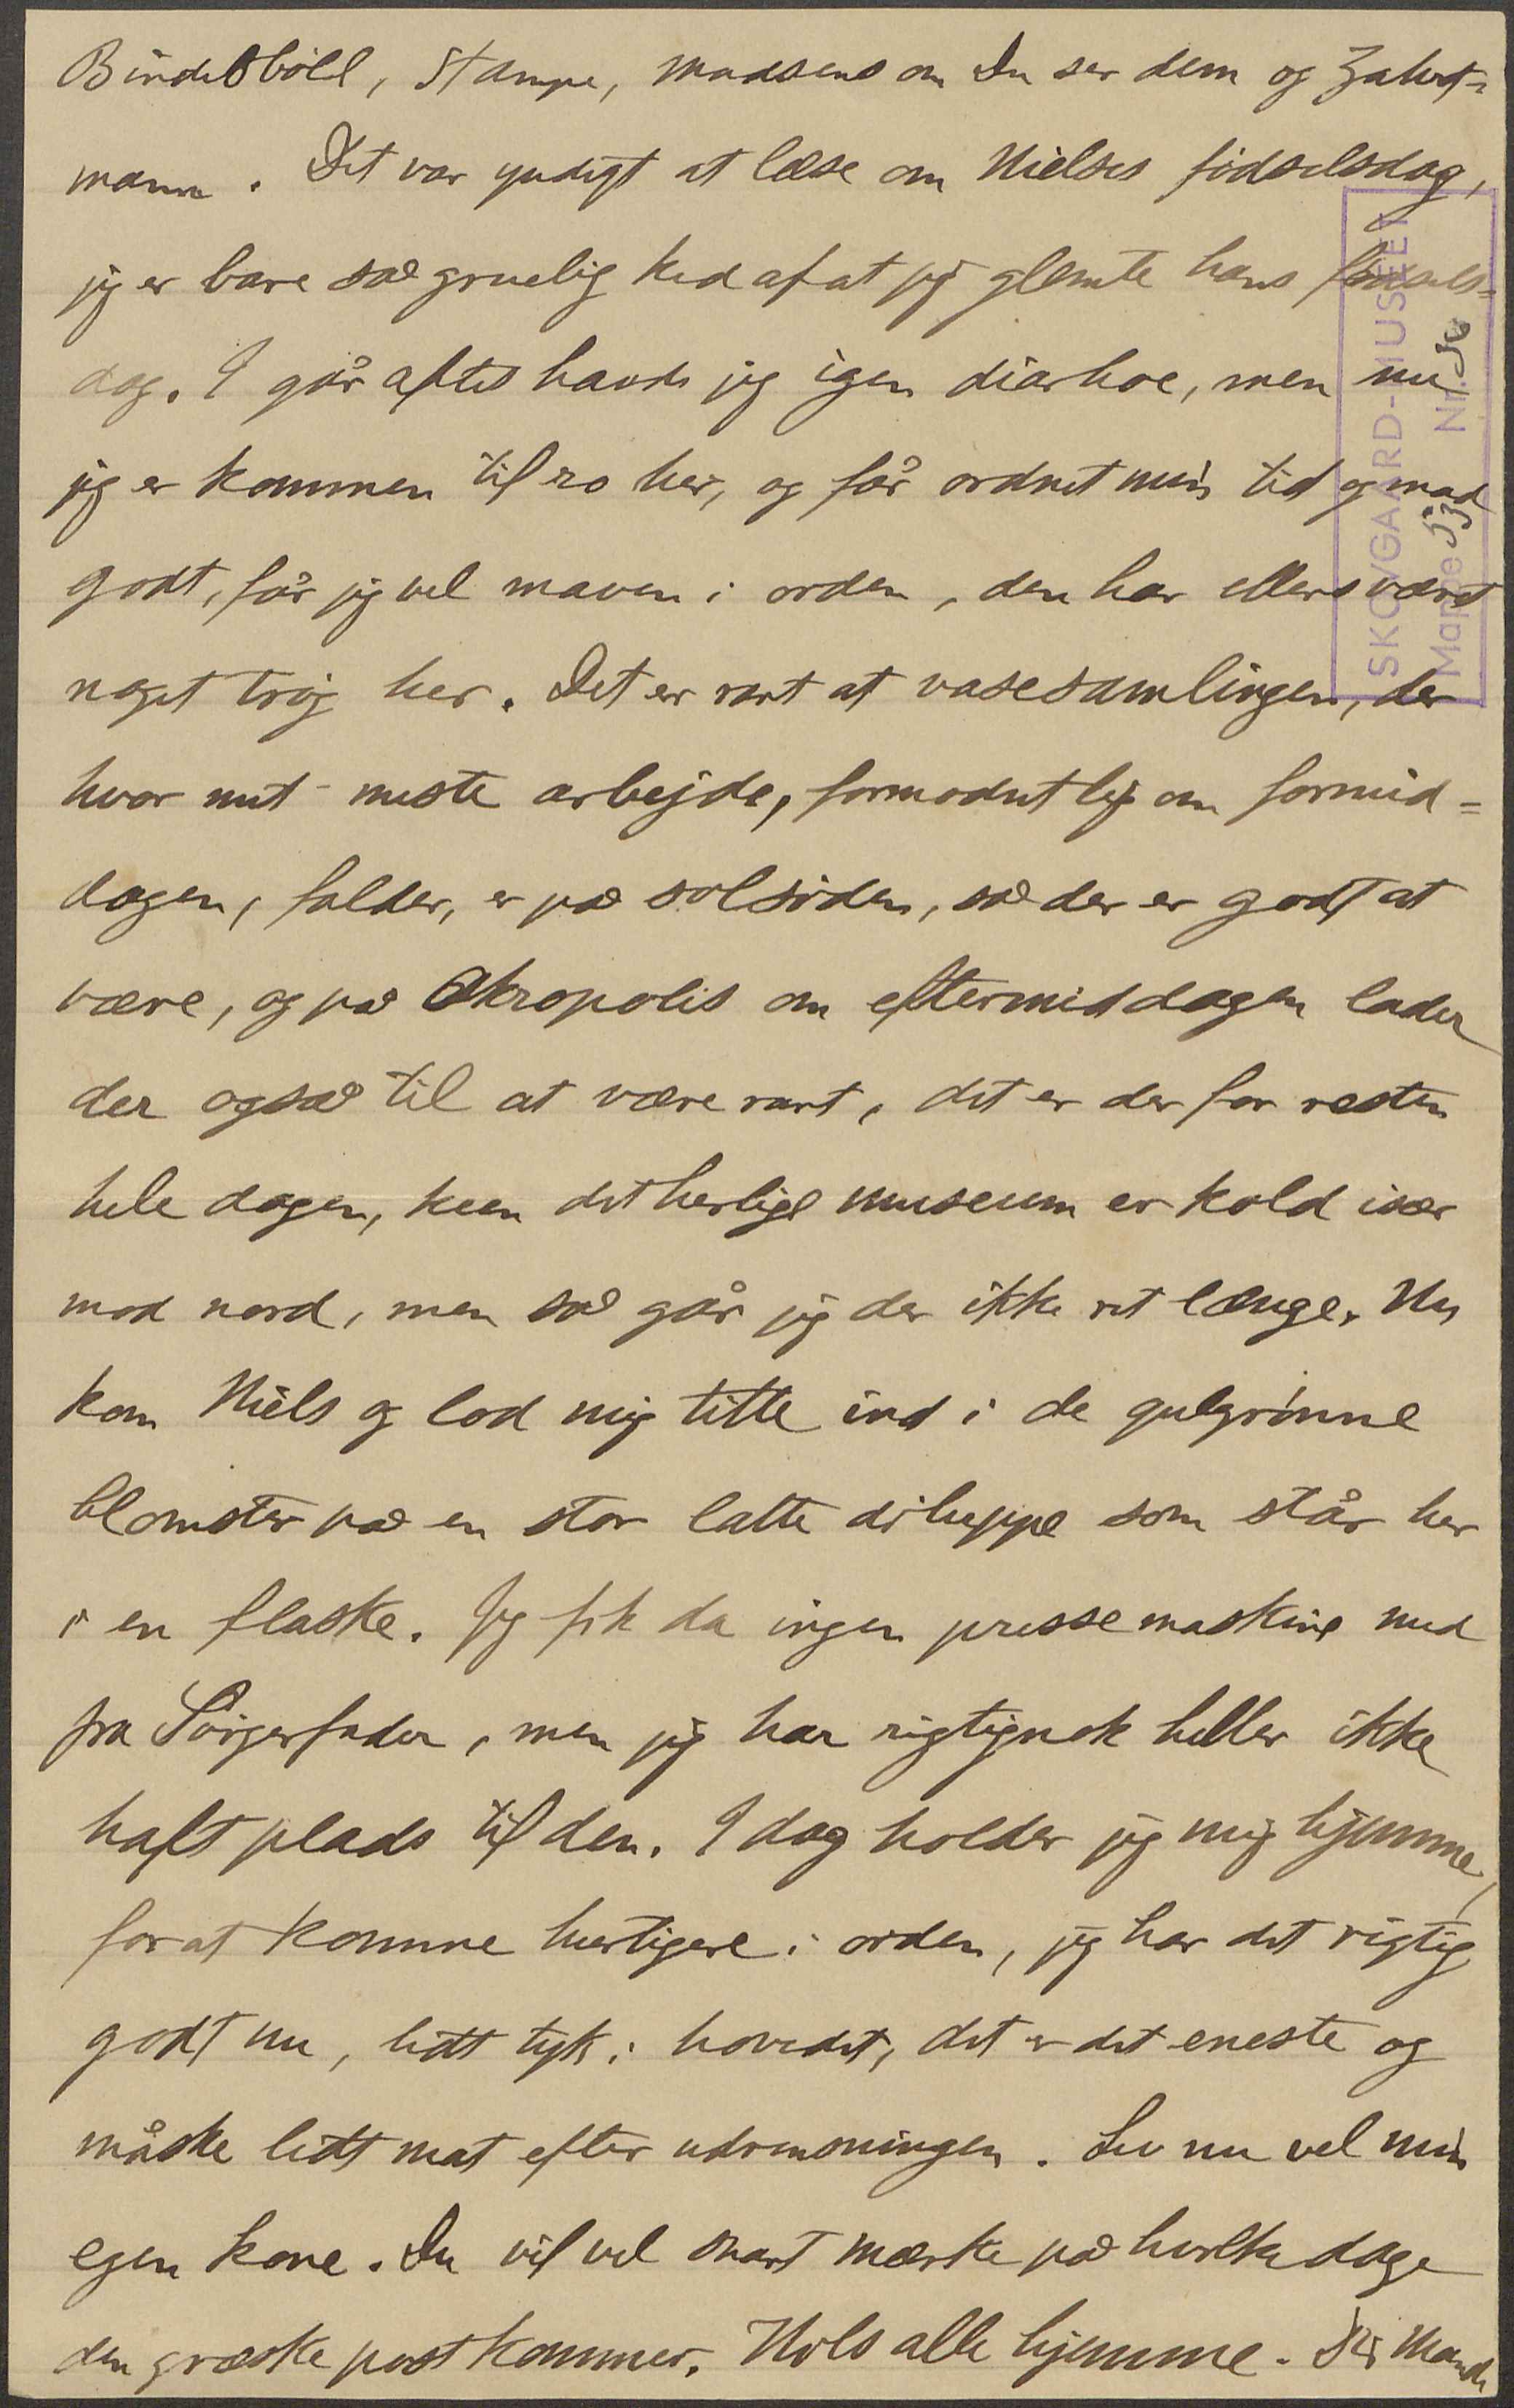 Bindesbøll, Stampe, Madsens om Du ser dem og Zahrt=
mann. Det var yndigt at læse om Nielses fødselsdag,
jeg er bare saa gruelig ked af at jeg glemte hans fødsels=
dag. I går aftes havde jeg igen diarhoe, men nu
jeg er kommen til ro her, og får ordnet min tid og mad
godt, får jeg vel maven i orden, den har ellers været
noget trøg her. Det er rart at vasesamlingen, der
hvor mit meste arbejde, formodentlig om formid=
dagen, falder, er paa solsiden, saa der er godt at
være, og paa Akropolis om eftermiddagen lader
der ogsaa til at være rart, det er der for resten
hele dagen, kun det herlige museum er kold især
mod nord, men saa går jeg der ikke ret længe. Nu
kom Niels og lod mig titte ind i de gulgrønne
blomster paa en stor latte di huppe som står her
i en flaske. Jeg fik da ingen pressemaskine med
fra Sørgerfader, men jeg har rigtignok heller ikke
haft plads til den. I dag holder jeg mig hjemme,
for at komme hurtigere i orden, jeg har det rigtig
godt nu, lidt tyk i hovedet, det er det eneste og
måske lidt mat efter udrensningen. Lev nu vel min
egen kone. Du vil vel snart mærke paa hvilke dage
den græske post kommer. Hils alle hjemme. Din Mand
SKOVGAARD-MUSEET
Mappe 53 Nr.